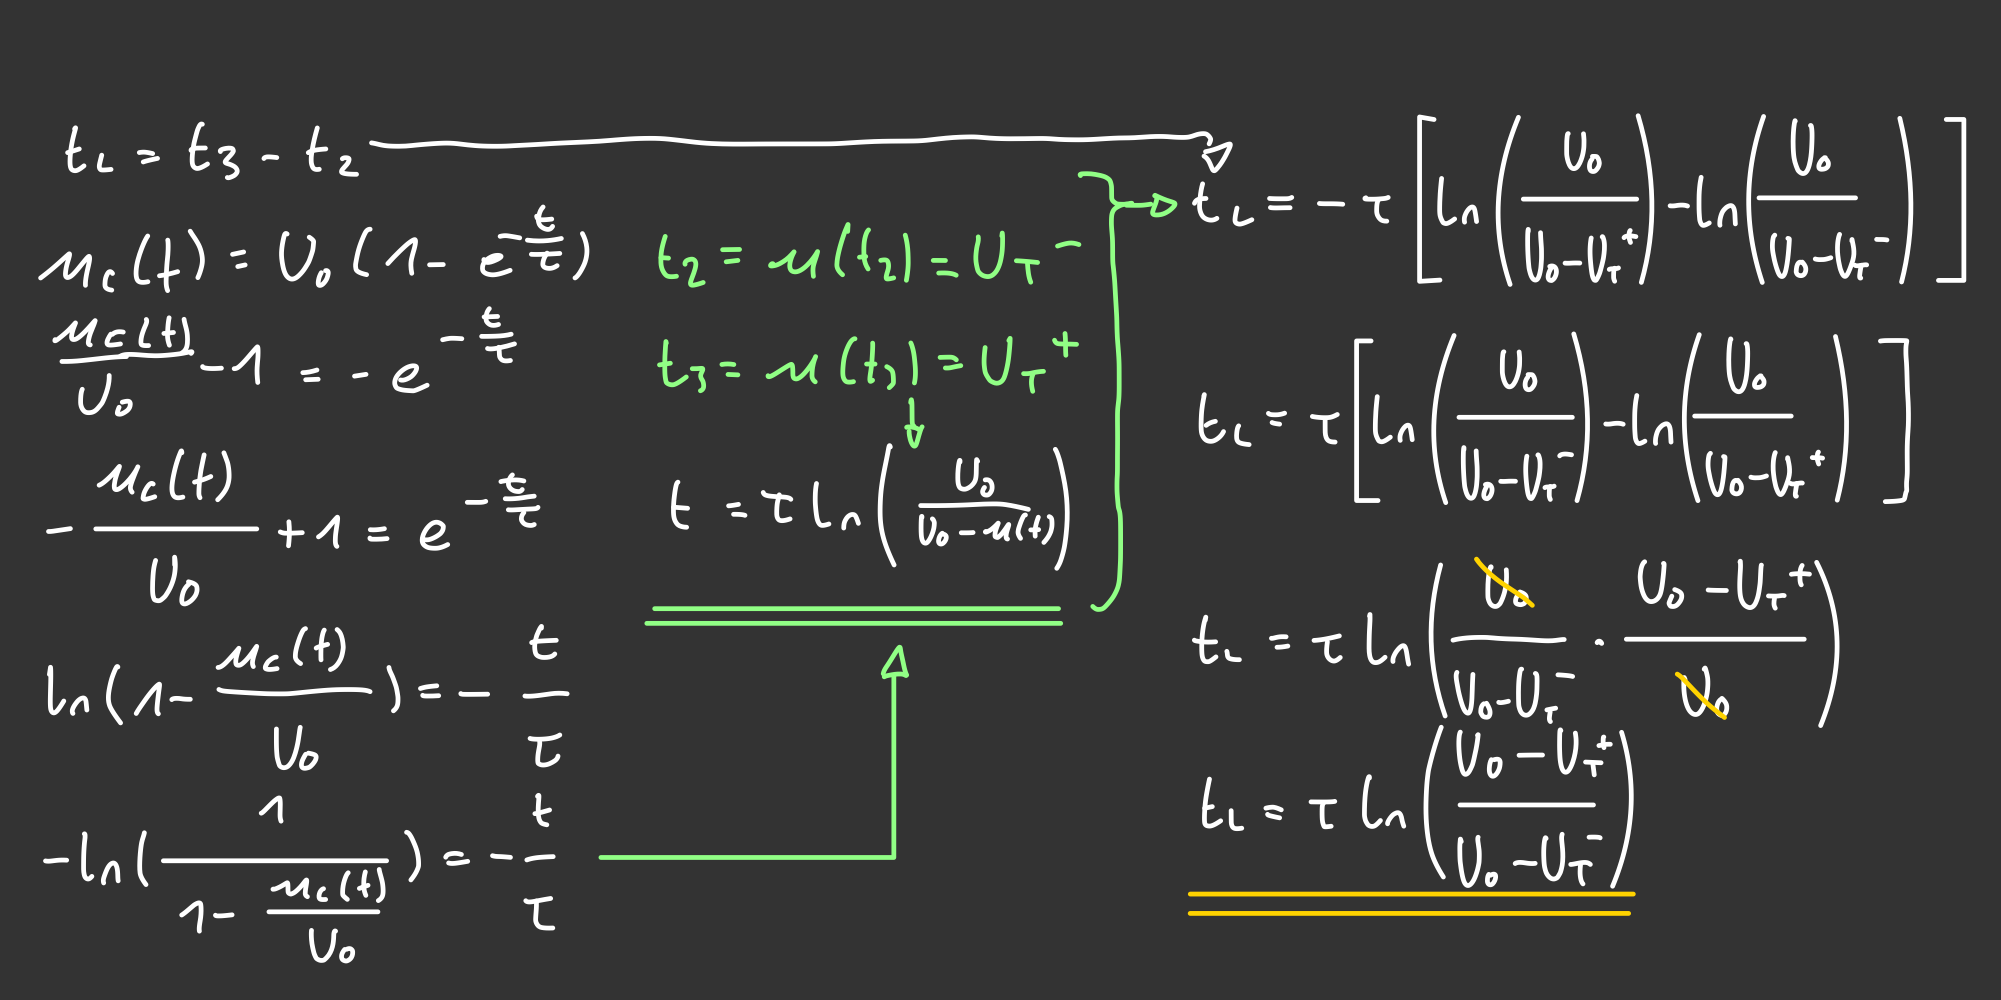 t_L = t_3 - t_2
u_c(t) = U_0 (1 - e^{-t/τ})
u_c(t)/U_0 - 1 = - e^{-t/τ}
- u_c(t)/U_0 + 1 = e^{-t/τ}
ln(1 - u_c(t)/U_0) = - t/τ
-ln(1/(1 - u_c(t)/U_0)) = - t/τ
t_2 = u(t_2) = U_T^-
t_3 = u(t_3) = U_T^+
t = τ ln(U_0/(U_0 - u(t)))
t_L = - τ [ln(U_0/(U_0 - U_T^+)) - ln(U_0/(U_0 - U_T^-))]
t_L = τ [ln(U_0/(U_0 - U_T^-)) - ln(U_0/(U_0 - U_T^+))]
t_L = τ ln(U_0/(U_0 - U_T^-) · (U_0 - U_T^+)/U_0)
t_L = τ ln((U_0 - U_T^+)/(U_0 - U_T^-))